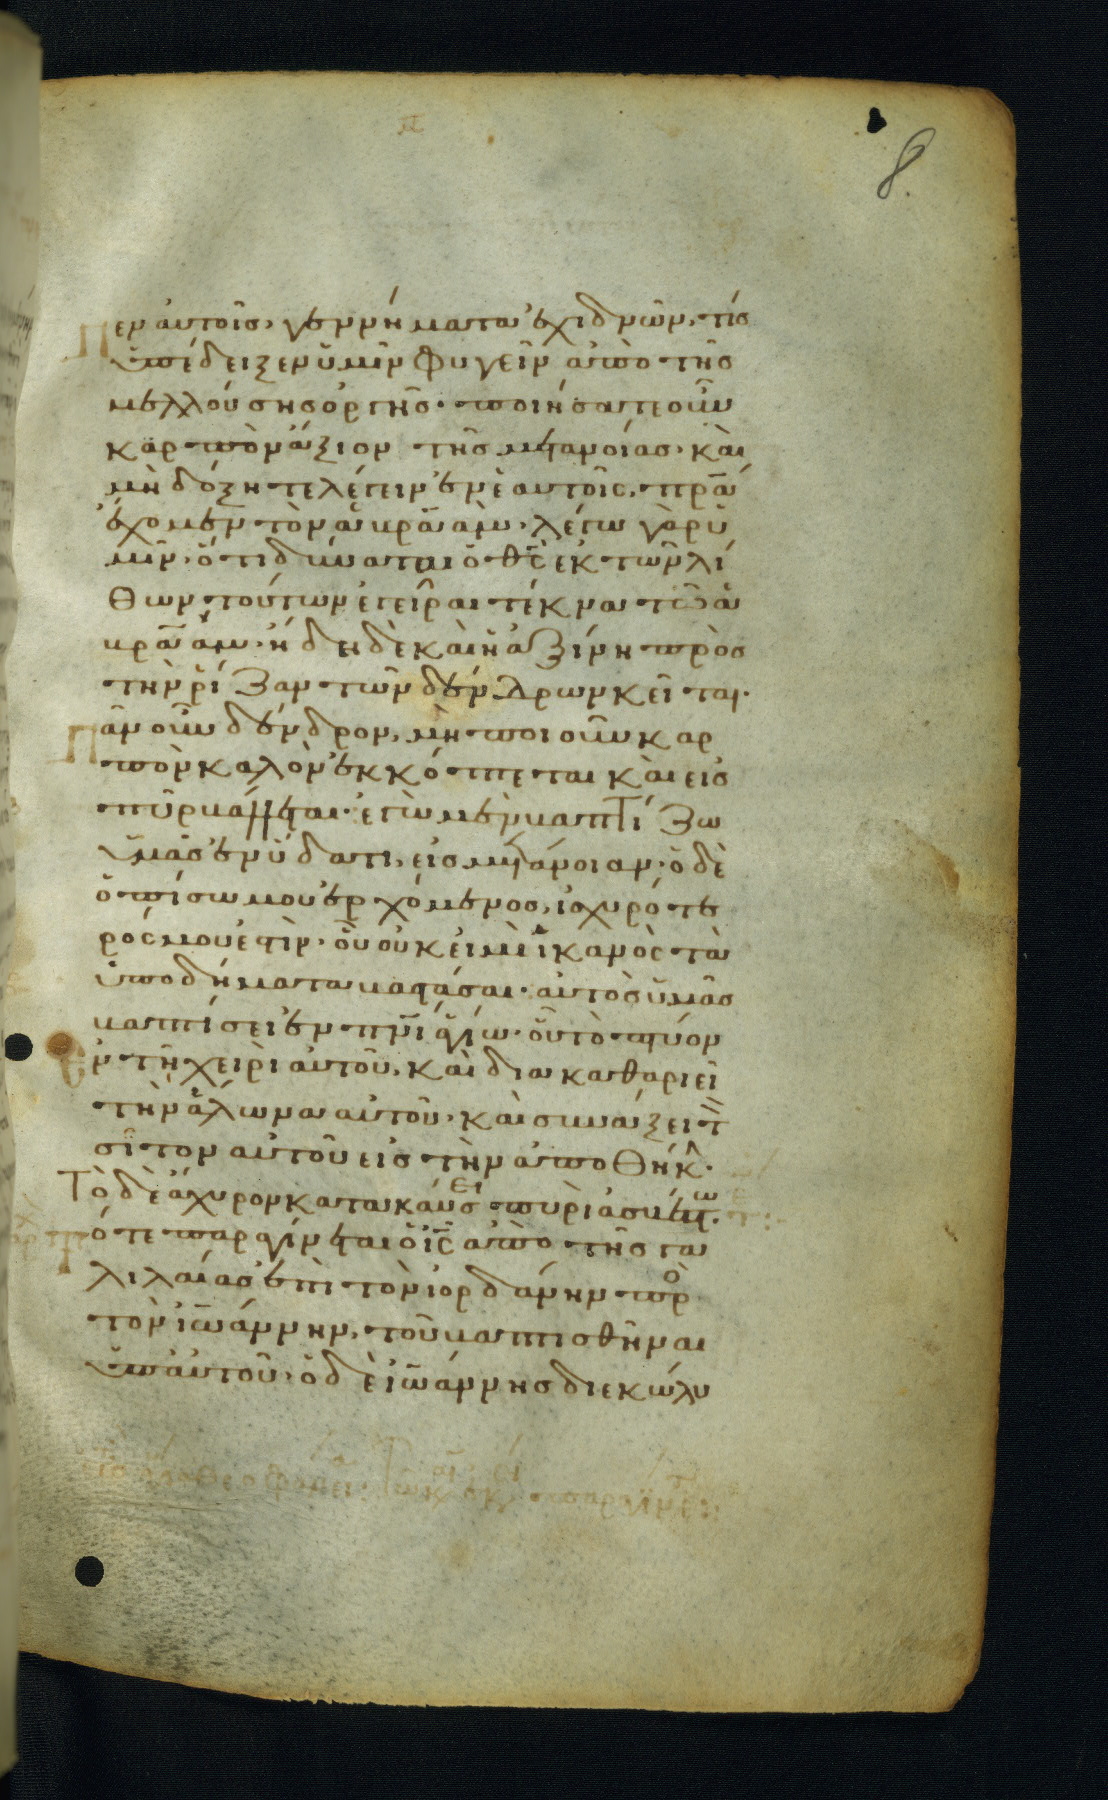 8.
πεν ἀυτοῖς, γεννήματα ἐχιδνῶν, τίς
ὑπέδειξεν ὑμῖν φυγεῖν ἀπὸ τῆς
μελλούσης ὀργῆς· ποιήσατε οὖν
καρπὸν ἄξιον τῆς μετανοίας· καὶ
μὴ δόξητε λέγειν ἐν ἑαυτοῖς, πρᾱ́
ἔχομεν τὸν ἀβραάμ· λέγω γὰρ ὑ
μῖν· ὅτι δύναται ὁ θ̅ς̅ ἐκ τῶν λί
θων τούτων ἐγεῖραι τέκνα τῶ ἀ
βραάμ· ἤδη δὲ καὶ ἡ ἀξίνη πρὸς
τὴν ῥίζαν τῶν δένδρων κεῖται·
πᾶν οὖν δένδρον, μὴ ποιοῦν καρ
πὸν καλὸν ἐκκόπτεται καὶ εἰς
πῦρ βάλλεται· ἐγὼ μὲν βαπτίζω
ὑμᾶς ἐν ὕδατι, εἰς μετάνοιαν· ὁ δὲ
ὀπίσω μου ἐρχόμενος, ἰσχυρότε
ρός μου ἐστὶν· οὗ οὐκ εἰμὶ ἱκανὸς τὰ
ὑποδήματα βαστάσαι· ἀυτὸς ὑμᾶς
βαπτίσει ἐν π̅ν̅ι̅ ἁγίω· οὗ τὸ πτύον
ἐν τῆ χειρὶ ἀυτοῦ, καὶ διακαθαριεῖ
τὴν ἅλωνα αὐτοῦ· καὶ συνάξει τ̀
σῖτον αὐτοῦ εἰς τὴν ἀποθήκ̑·
Τὸ δὲ ἄχυρον κατακαύσει πυρὶ ἀσβέστω·
τότε παραγίνεται ὁ ι̅ς̅ ἀπὸ τῆς γα
λιλαίας ἐπὶ τὸν ἰορδάνην πρὸ
τὸν ἰωάννην, τοῦ βαπτισθῆναι
ὑπ' ἀυτοῦ· ὁ δὲ ἰωάννης διεκώλυ